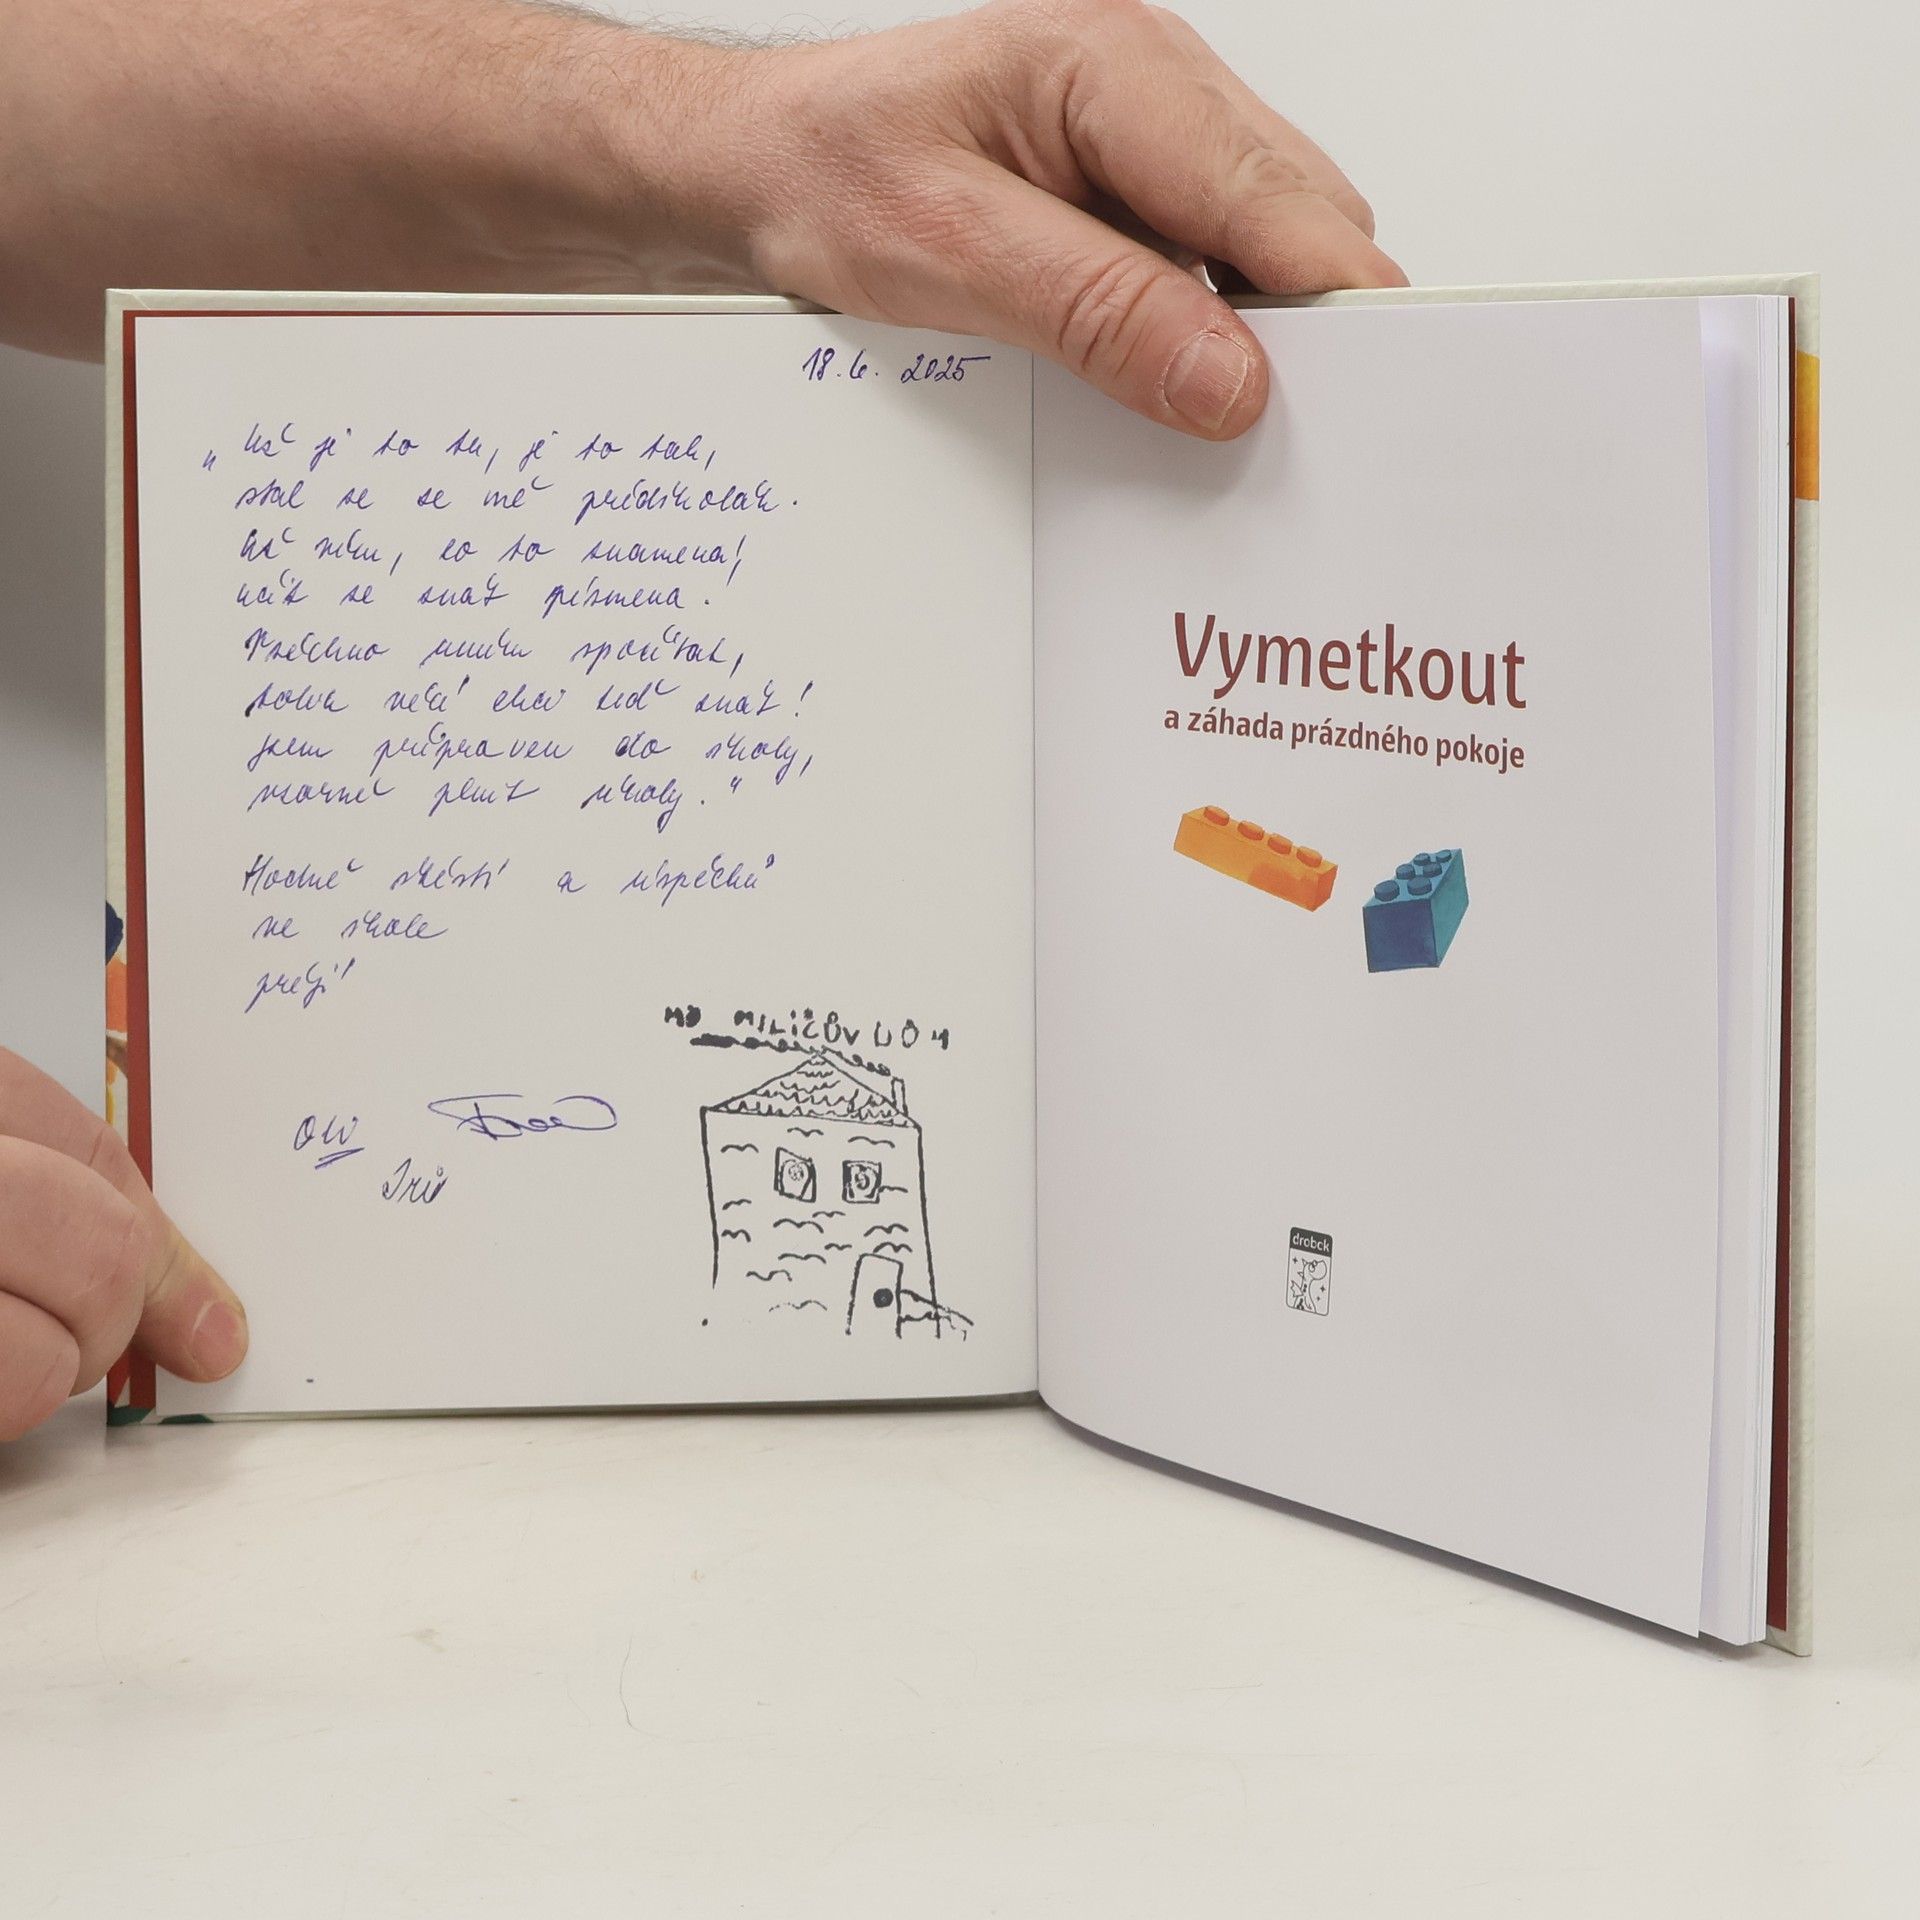 18.6. 2025
„Už je to tu, je to tak,
stal se ze mě předškolák.
Už vím, co to znamená,
učit se znát písmena.
Všechno umím spočítat,
tolik věcí chci teď znát!
Jsem připraven do školy,
vzorně plnit úkoly.“
Hodně štěstí a úspěchů
ve škole
přejí
MŠ MILÍČŮV DŮM
Vymetkout
a záhada prázdného pokoje
drobek